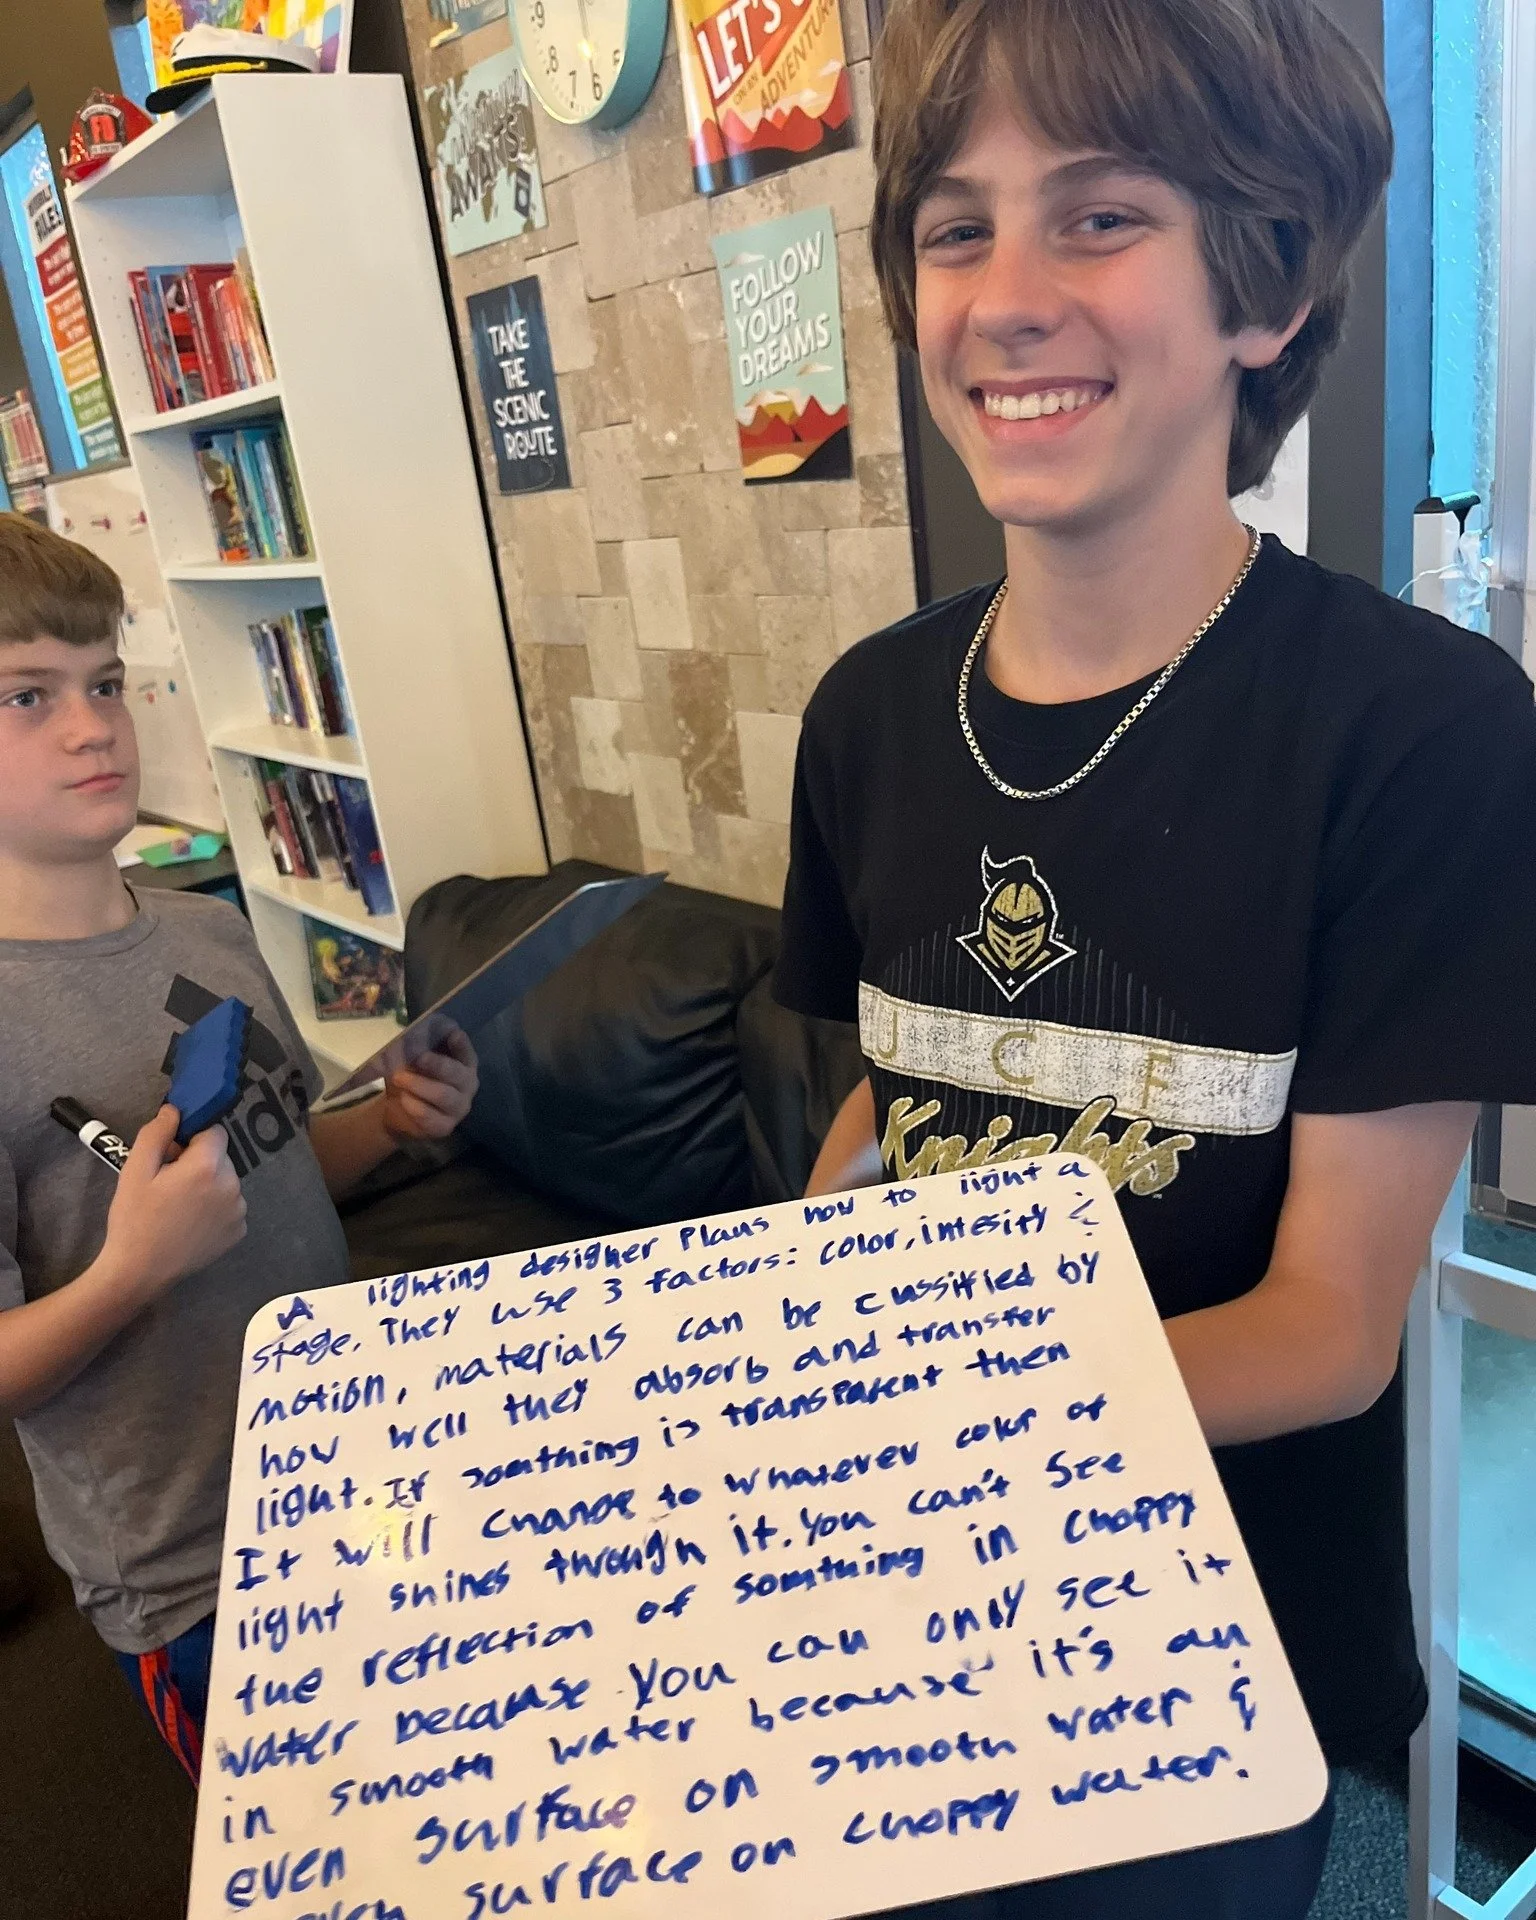 9
8
7
6
LET'S
ADVENTURE
AWAITS
FOLLOW
YOUR
DREAMS
TAKE
THE
SCENIC
ROUTE
RULES
U C F
Knights
A lighting designer Plans how to light a
stage. They use 3 factors: color, intesity &
motion, materials can be classified by
how well they absorb and transfer
light. If somthing is transparent then
It will change to whatever color of
light shines through it. You can't see
the reflection of somthing in choppy
water because you can only see it
in smooth water because it's an
even surface on smooth water &
surface on choppy water.